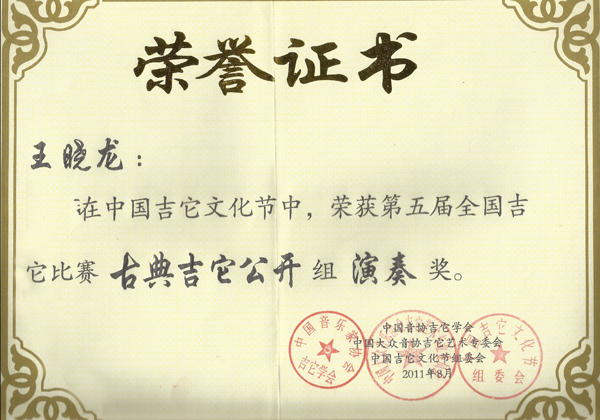 荣誉证书
王晓龙：
在中国吉它文化节中，荣获第五届全国吉
它比赛 古典吉它公开 组 演奏 奖。
中国音协吉它学会
中国大众音协吉它艺术专委会
中国吉它文化节组委会
2011年8月
中国音乐家协会
吉它学会
吉它文化节
组委会